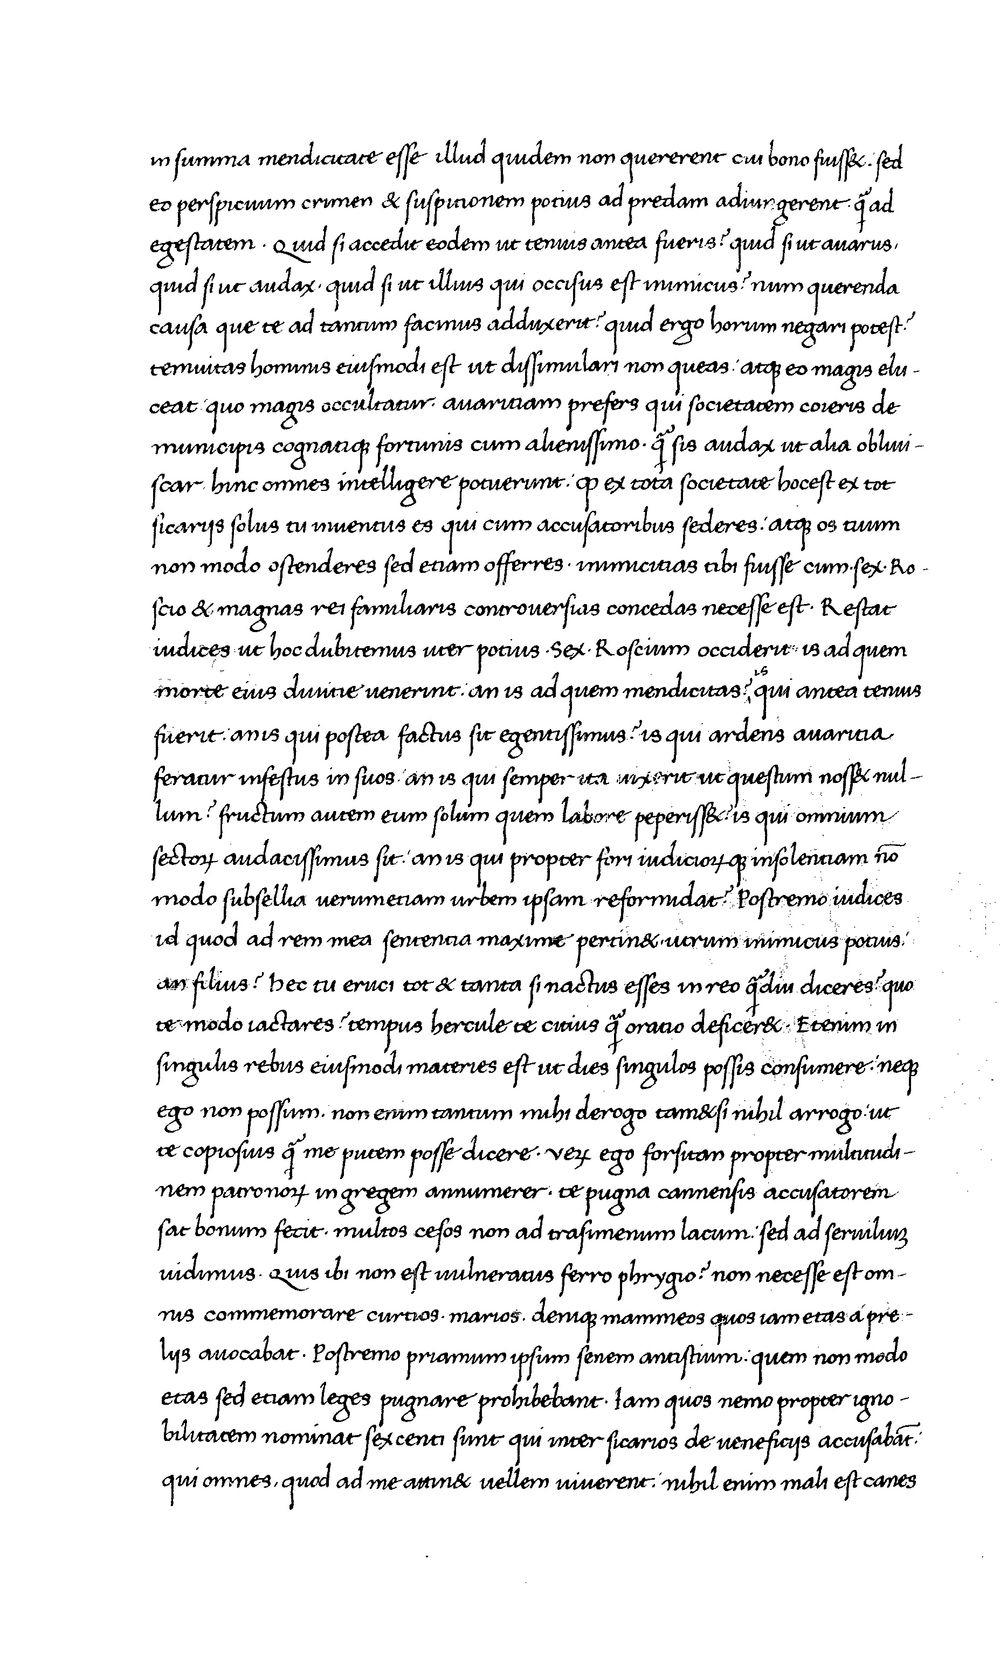 in summa mendicitate esse illud quidem non quererent cui bono fuiss&. sed
eo perspicuum crimen & suspitionem potius ad predam adiungerent. q̃ ad
egestatem. Quid si accedit eodem ut tenuis antea fueris? quid si ut avarus,
quid si ut audax. quid si ut illius qui occisus est inimicus? num querenda
causa que te ad tantum facinus adduxerit? quid ergo horum negari potest?
tenuitas hominis eiusmodi est ut dissimulari non queas: atq; eo magis elu-
ceat quo magis occultatur. avaritiam prefers qui societatem coieris de
municipis cognatiq; fortunis cum alienissimo. q̃ sis audax ut alia oblivi-
scar hinc omnes intelligere potuerunt: ꝙ ex tota societate hocest ex tot
sicariis solus tu inventus es qui cum accusatoribus sederes: atq; os tuum
non modo ostenderes sed etiam offerres. inimicitias tibi fuisse cum.sex.Ro-
scio & magnas rei familiaris controversias concedas necesse est. Restat
iudices ut hoc dubitemus uter potius. Sex. Roscium occiderit: is ad quem
morte eius divitie venerint: an is ad quem mendicitas? is qui antea tenuis
fuerit: an is qui postea factus sit egentissimus? is qui ardens avaritia
feratur infestus in suos: an is qui semper ita vixerit ut questum noss& nul-
lum? fructum autem eum solum quem labore peperiss&? is qui omnium
sectoꝝ audacissimus sit: an is qui propter fori iudicioꝝq; insolentiam nō
modo subsellia verumetiam urbem ipsam reformidat? Postremo iudices
id quod ad rem mea sententia maxime pertin&. utrum inimicus potius:
an filius? hec tu eruci tot & tanta si nactus esses in reo q̃diu diceres? quo
te modo iactares? tempus hercule te citius q̃ oratio deficer&. Etenim in
singulis rebus eiusmodi materies est ut dies singulos possis consumere: neq;
ego non possum. non enim tantum mihi derogo tam&si nihil arrogo: ut
te copiosius q̃ me putem posse dicere. veꝝ ego forsitan propter multitudi-
nem patronoꝝ in gregem annumerer. te pugna cannensis accusatorem
sat bonum fecit. multos cesos non ad trasimenum lacum: sed ad servilium
vidimus. Quis ibi non est vulneratus ferro phrygio? non necesse est om-
nis commemorare curtios. marios. deniq; mammeos quos iam etas a pre-
liis avocabat. Postremo priamum ipsum senem antistium: quem non modo
etas sed etiam leges pugnare prohibebant. Iam quos nemo propter igno-
bilitatem nominat sexcenti sunt qui inter sicarios de veneficiis accusabāt:
qui omnes, quod ad me attin& vellem viverent: nihil enim mali est canes